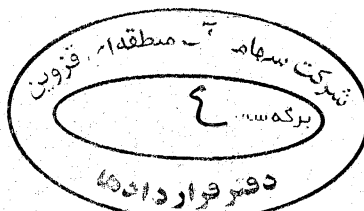 شرکت سهامی آب منطقه‌ای قزوین
برگه سـ... ٤
دفتر قراردادها